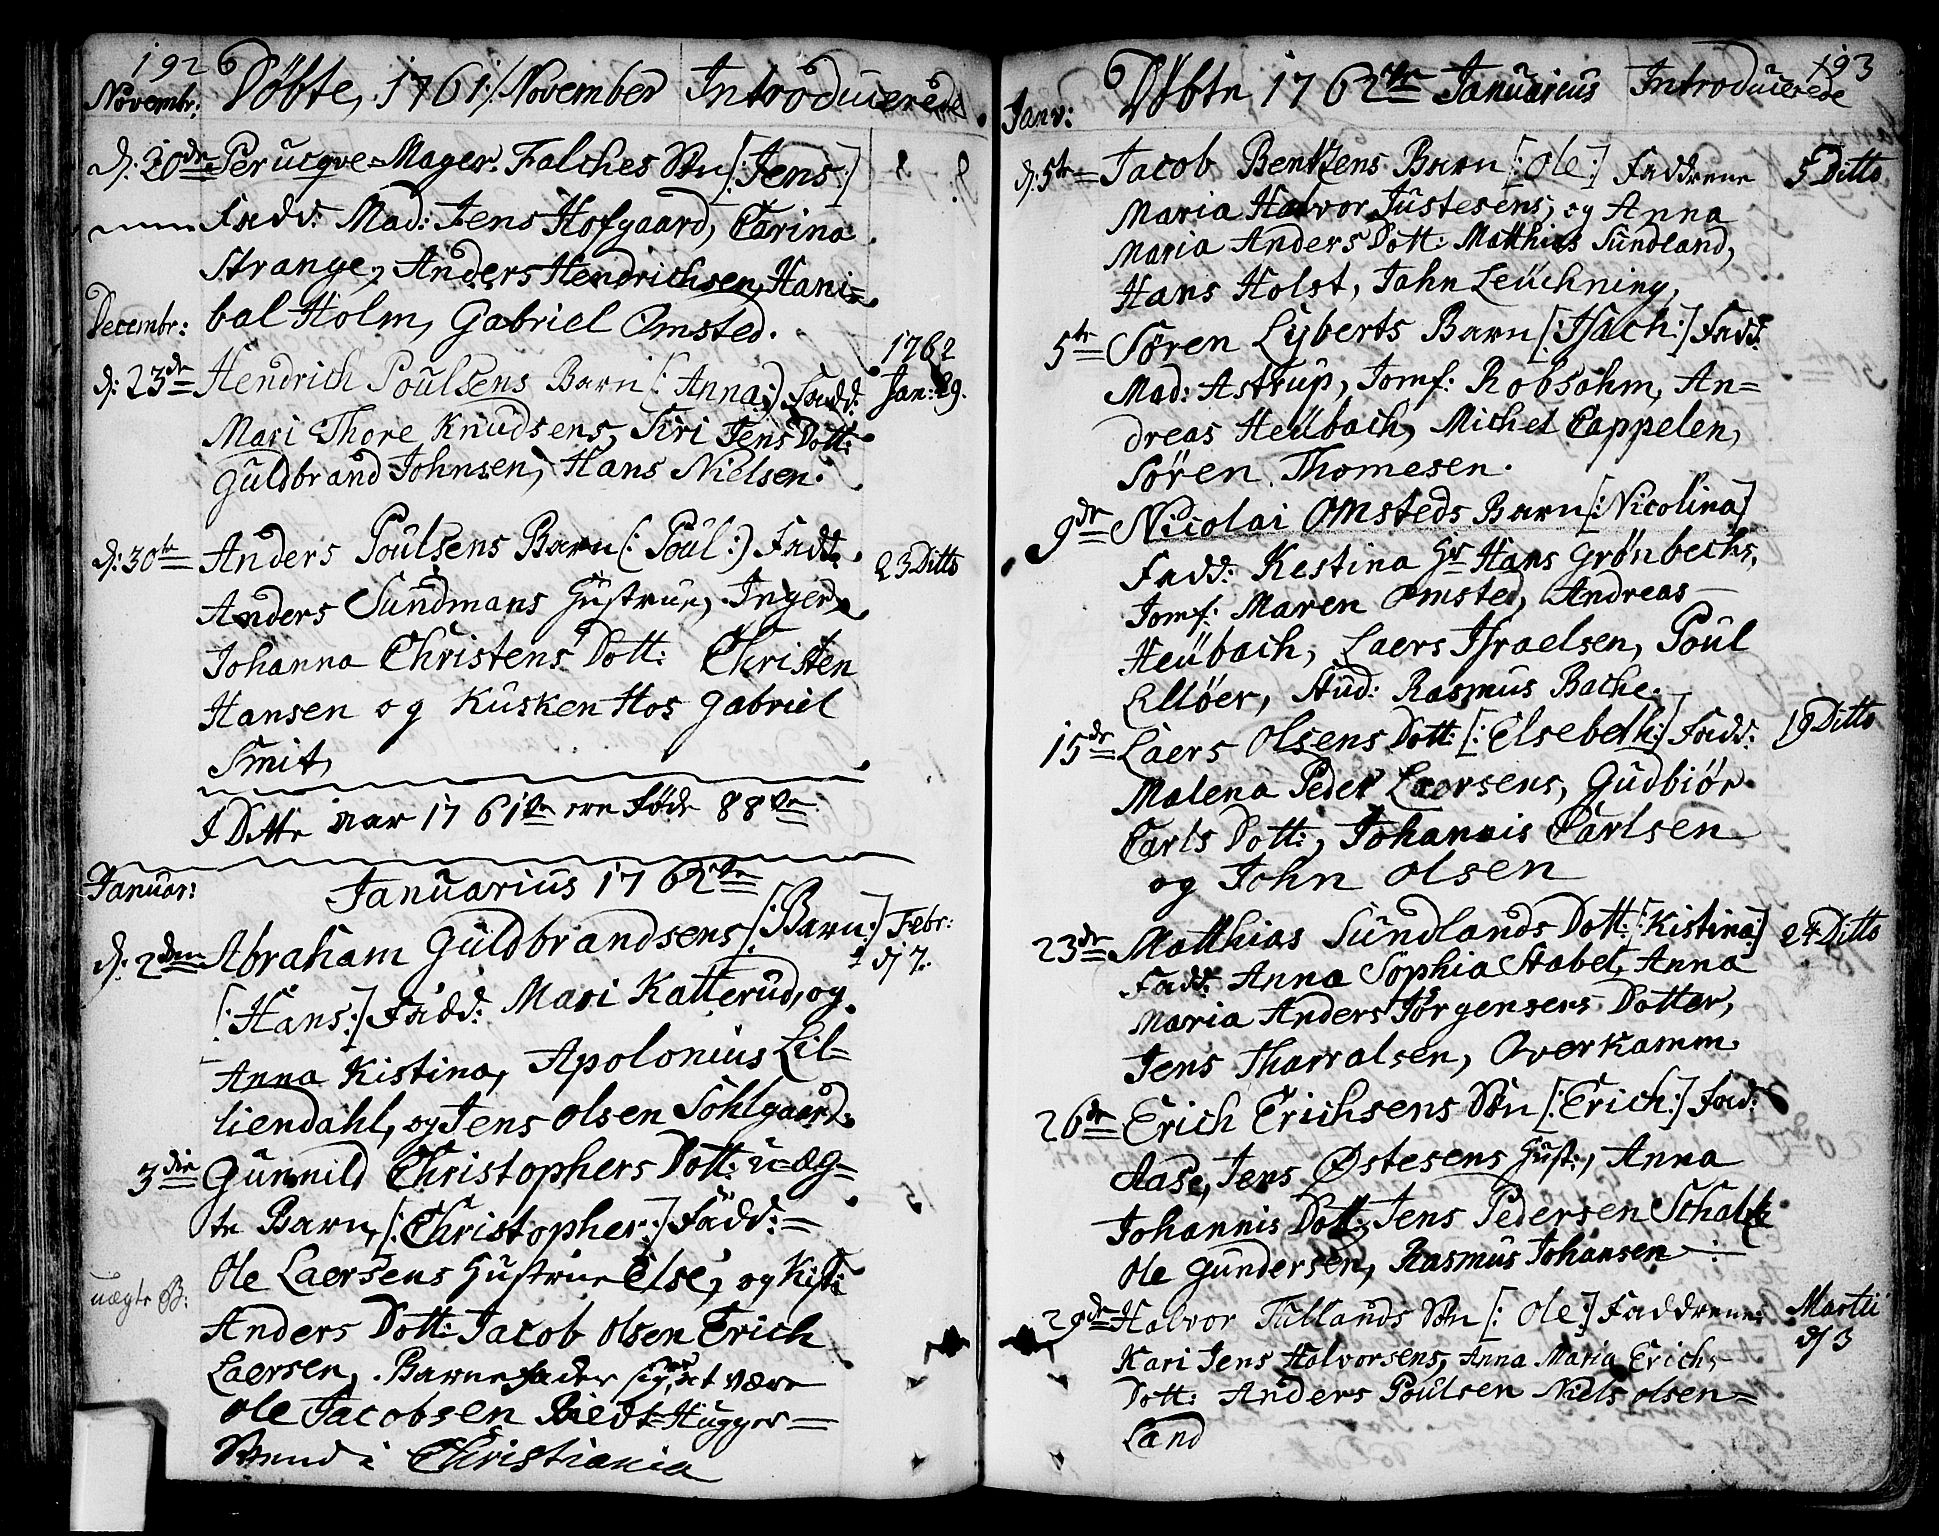 192
Novembr: Döbte, 1761 / November Introducerede
d: 20de Perucqve=Mager Falches Søn [: Jens :]
Fadd: Mad: Jens Hofgaard, Carina
Strange, Anders Hendrichsen, Hani=
Decembr: bal Holm, Gabriel Omsted.
1762
d: 23de Hendrich Poulsens Barn (: Anna :) Fadd: Jan: 29.
Mari Thore Knudsens, Siri Jens Dott:
Guldbrand Johnsen, Hans Nielsen.
d: 30te Anders Poulsens Barn (: Poul :) Fadd: 23 Ditto
Anders Sundmans Hustrue, Inger
Johanna Christens Dott: Christen
Hansen og Kusken Hos Gabriel
Smit,
I Ditte aar 1761de ere føde 88de
Januar: Januarius 1762de
d: 2den Abraham Guldbrandsens [: Barn :] Febr:
d 7.
[: Hans :] Fadd: Mari Katterud, og
Anna Kistina, Apolonius Lil=
liendahl, og Jens Olsen Sohlgaard.
3die Gunnild Christophers Dott: uæg=
te Barn, [: Christopher :] Fadd:=
Ole Laersens Hustrue Else, og Kist:
uægte B:
Anders Dott: Jacob Olsen Erich
Laersen, Barnefader siges at være
Ole Jacobsen Hugger=
Svend i Christiania
193
Janv: Döbte 1762de Januarius Introducerede
d: 5te Jacob Bentzens Barn [: Ole :] Faddrene 5 Ditto
Maria Halvor Justesens, og Anna
Maria Anders Dott: Matthias Sundland,
Hans Holst, John Leuchning,
5te Sören Lyberts Barn [: Isach :] Fadd:
Mad: Astrup, Jomf: Robsahm, An=
dreas Heübach, Michel Cappelen,
Sören Thomesen.
9de Nicolai Omsteds Barn [: Nicolina]
Fadd: Kestina Hr Hans Grönbechs,
Jomf: Maren Omsted, Andreas
Heübach, Laers Israelsen, Poul
Ellöer, Stud: Rasmus Bache.
15de Laers Olsens Dott: [: Elsebeth :] Fadd: 19 Ditto
Malena Peder Laersens, Gudbiör
Carls Dott:, Johannis Carlsen
og John Olsen
23de Matthias Sundlands Dott: [: Kistina :] 24 Ditto
Fadd: Anna Sophia Stabel, Anna
Maria Anders Jörgensens Dotter,
Jens Tharralsen, Overkamm
26de Erich Erichsens Søn [: Erich :] Fad:
Aase, Jens Østesens Hust:, Anna
Johannis Dott: Jens Pedersen Schalk
Ole Gundersen, Rasmus Johansen
29de Halvor Tullands Søn [: Ole :] Faddrene: Martii
d 3
Kari Jens Halvorsens, Anna Maria Erich=
Dott: Anders Poulsen Niels Olsen=
Land